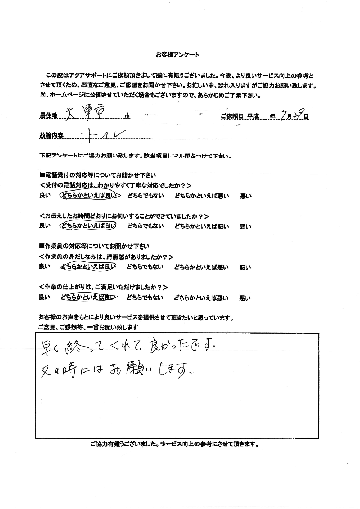 お客様アンケート
この度はアクアサポートにご依頼頂きまして誠に有難うございました。今後、より良いサービス向上の参考と
させて頂くため、率直なご意見、ご感想をお聞かせ下さい。お忙しい中、恐れ入りますがご協力お願い致します。
尚、ホームページに公開させていただく場合もございますので、あらかじめご了承下さい。
居住地 大東市 ご依頼日 平成 年
依頼内容 トイレ
下記アンケートにご協力お願い致します。該当項目に○印をつけて下さい。
■電話受付の対応等についてお聞かせ下さい
<受付の電話対応は、わかりやすく丁寧な対応でしたか？>
良い どちらかといえば良い どちらでもない どちらかといえば悪い 悪い
<お伝えしたお時間どおりにお伺いすることができていましたか？>
良い どちらかといえば良い どちらでもない どちらかといえば悪い 悪い
■作業員の対応等についてお聞かせ下さい
<作業員の身だしなみは、清潔感がありましたか？>
良い どちらかといえば良い どちらでもない どちらかといえば悪い 悪い
<作業の仕上がりは、ご満足いただけましたか？>
良い どちらかといえば良い どちらでもない どちらかといえば悪い 悪い
お客様のお声をもとにより良いサービスを提供させて頂きたいと思っています。
ご意見、ご感想等、一言お願い致します
早く終ってくれて良かったです。
又の時にはお願いします。
ご協力有難うございました。サービス向上の参考にさせて頂きます。